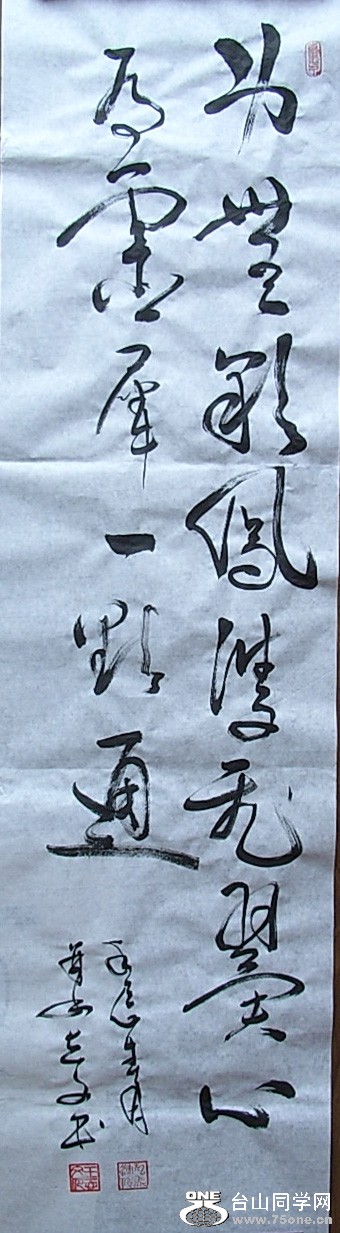 身無彩鳳雙飛翼心
有靈犀一點通
ONE
台山同学网
www.75one.cn